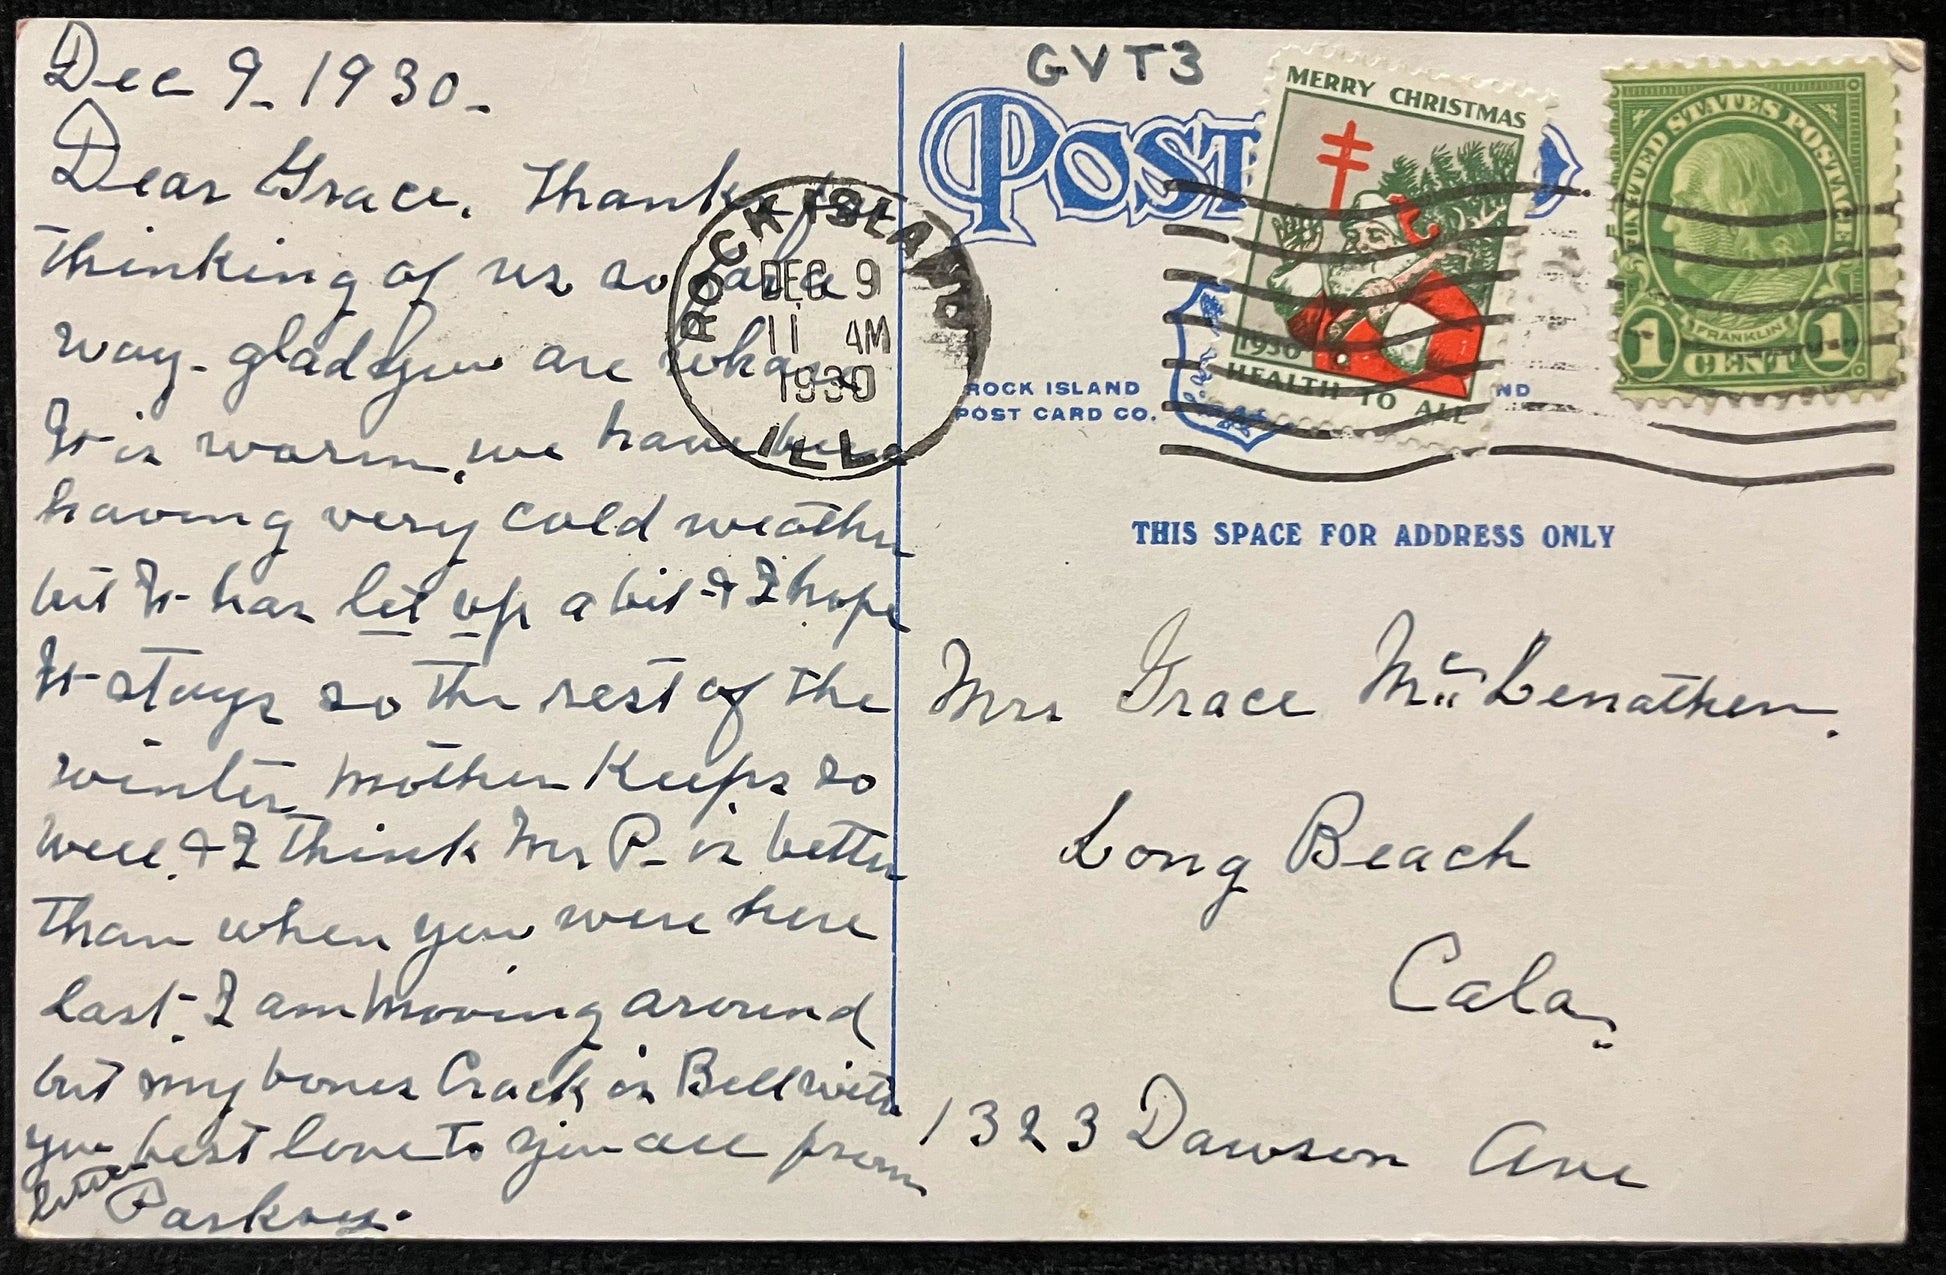 Dec 9-1930-
Dear Grace. Thanks for
thinking of us so far a
way- glad you are where
It is warm, we have been
having very cold weather
but It has let up a bit & I hope
It stays so the rest of the
winter mother Keeps so
well. & I think Mr P- is better
than when you were here
last- I am moving around
but my bones Crack is Bell with
you best love to you all from
Parkay.
GVT3
POST
ROCK ISLAND
POST CARD CO.
ND
ROCK ISLAND
DEC 9
11 AM
1930
ILL.
MERRY CHRISTMAS
1930
HEALTH TO ALL
UNITED STATES POSTAGE
FRANKLIN
1 CENT 1
THIS SPACE FOR ADDRESS ONLY
Mrs Grace Mc Lenathen.
Long Beach
Cala
1323 Dawson Ave